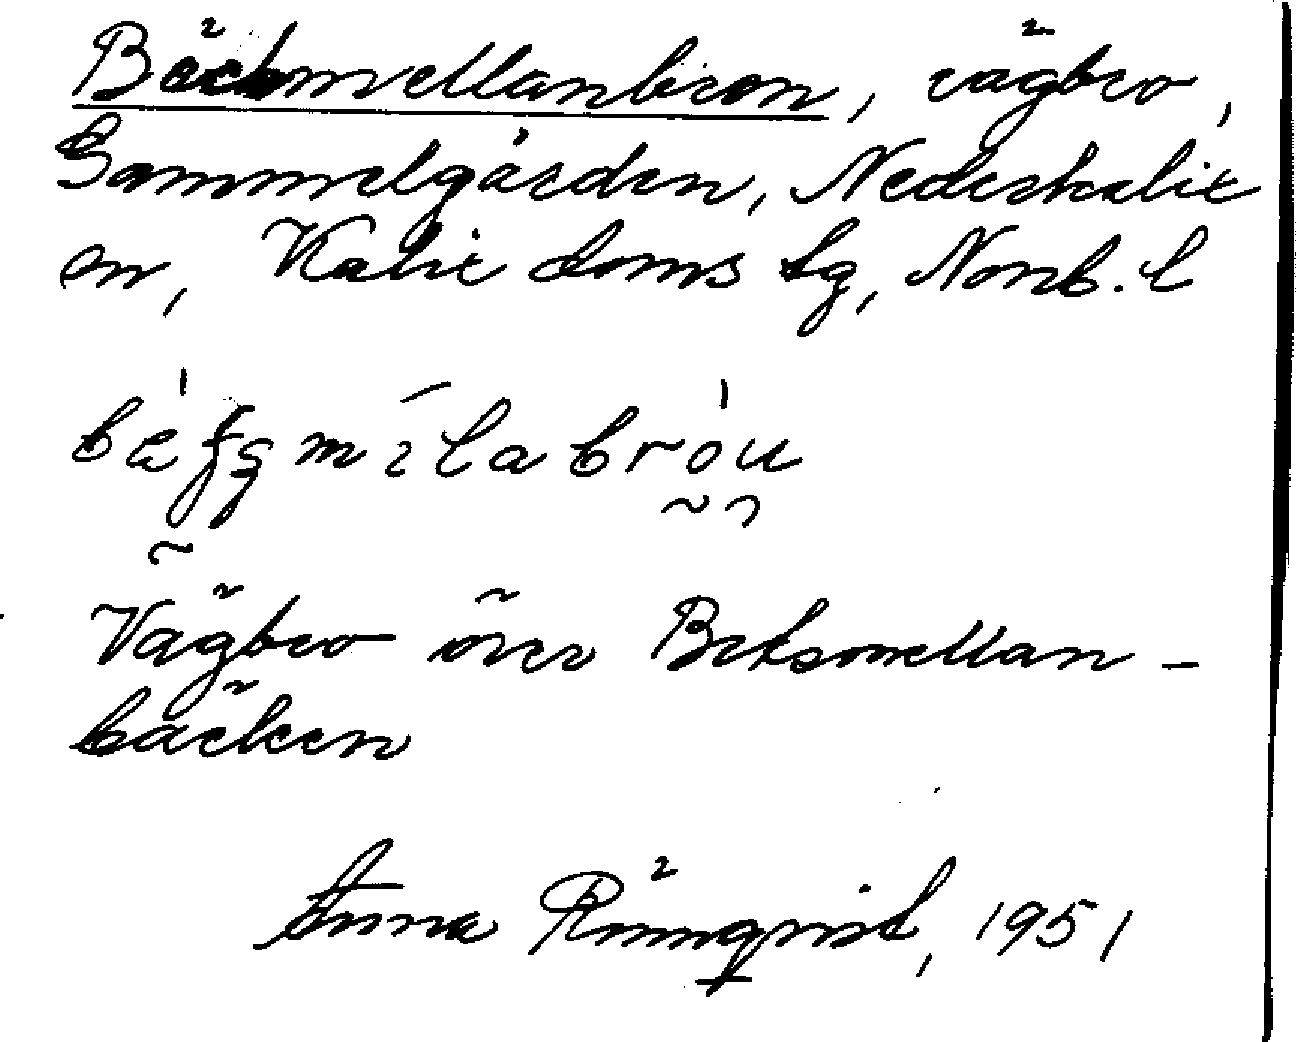 Bäckmellanbron, vägbro,
Gammelgården, Nederkalix
en, Kalix doms lg, Norrb. l
Vägbro över Betsmellan-
bäcken
Anna Rönnqvist, 1951